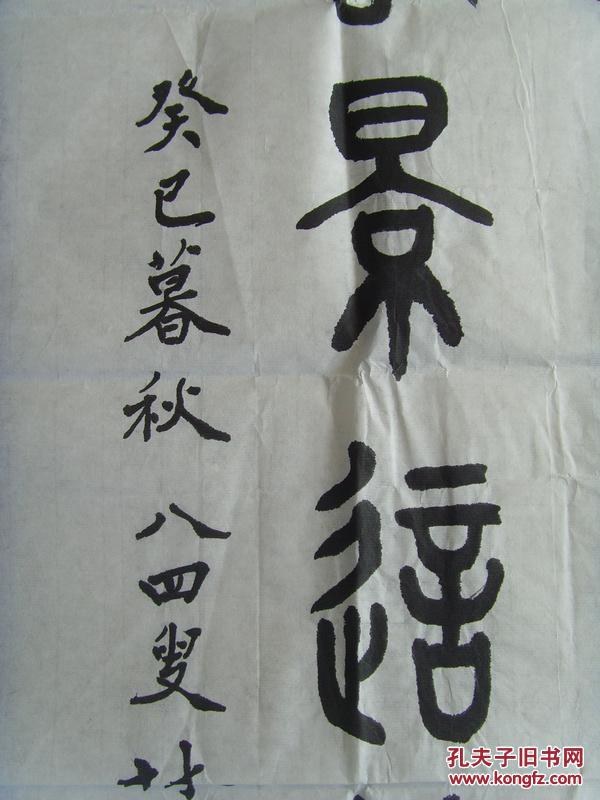 景這
癸巳暮秋 八四叟
孔夫子旧书网
www.kongfz.com